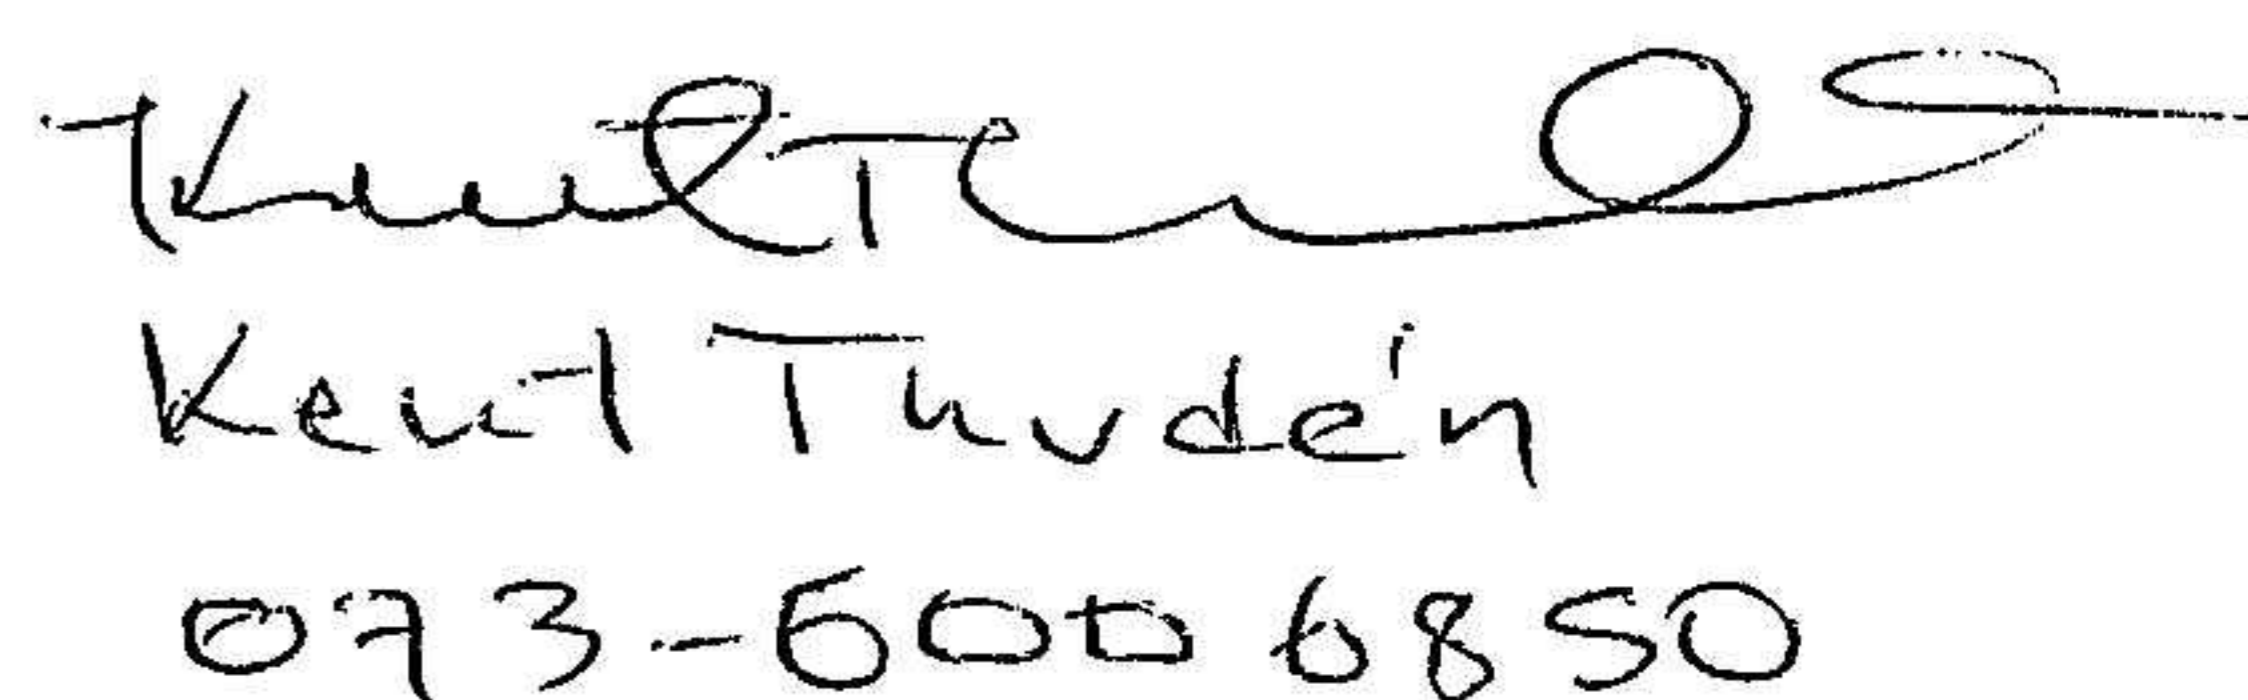 Kent Thudén
Kent Thudén
073-600 6850